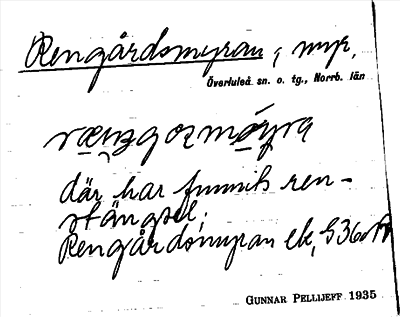 Rengårdsmyran, myr,
Överluleå sn. o. tg., Norrb. län
där har funnits ren-
stängsel;
Rengårdsmyran ek,
GUNNAR PELLIJEFF 1935